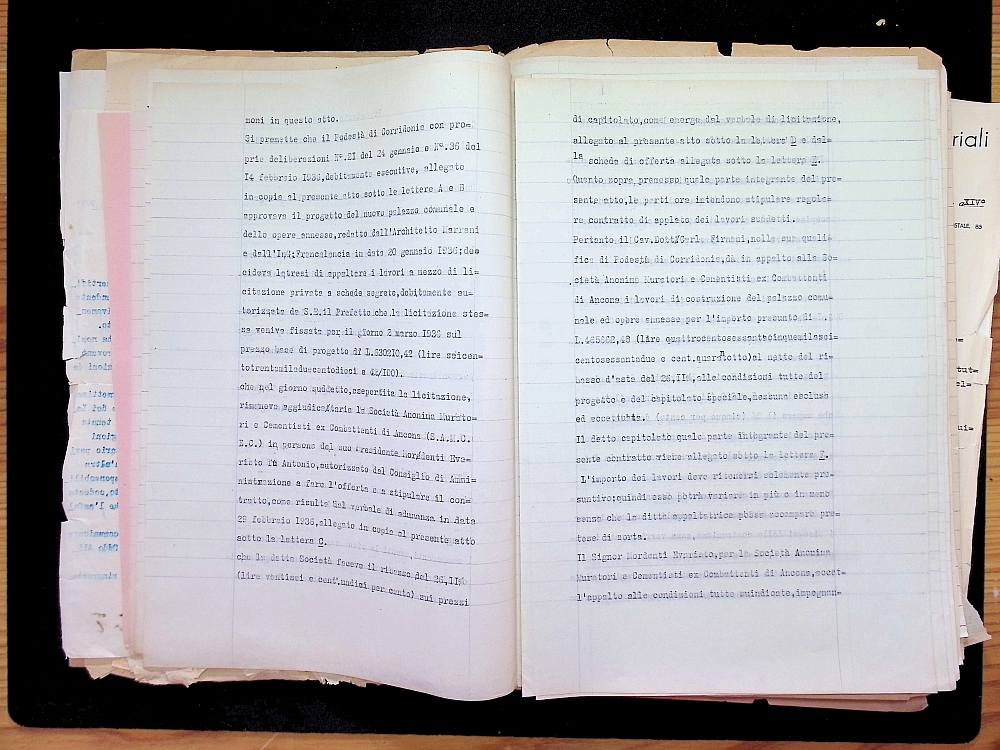 moni in questo atto.
Si premette che il Podestà di Corridonia con pro=
prie deliberazioni N°.21 del 24 gennaio e N°.36 del
I4 febbraio I936, debitamente esecutive, allegate
in copia al presente atto sotto le lettere A e B
approvava il progetto del nuovo palazzo comunale e
delle opere annesse, redatto dall'Architetto Marrani
e dall'Ing: Francalancia in data 20 gennaio I936; de=
cideva altresi di appaltare i lavori a mezzo di li=
citazione privata a schede segrete, debitamente au=
torizzata da S.E. il Prefetto che la licitazione stes=
sa veniva fissata per il giorno 2 marzo I936 sul
prezzo base di progetto di L.630210,42 (lire seicen=
totrentamiladuecentodieci e 42/I00).
che nel giorno suddetto, esperita la licitazione,
rimaneva aggiudicataria la Società Anonima Murato=
ri e Cementisti ex Combattenti di Ancona (S.A.M.C.
E.C.) in persona del suo Presidente Mordenti Eva=
risto fu Antonio, autorizzato dal Consiglio di Ammi=
nistrazione a fare l'offerta e a stipulare il con=
tratto, come risulta dal verbale di adunanza in data
29 febbraio I936, allegato in copia al presente atto
sotto la lettera C.
che la detta Società faceva il ribasso del 26,II%
(lire ventisei e cent. undici per cento) sui prezzi
di capitolato, come emerge dal verbale di licitazione,
allegato al presente atto sotto la lettera D e dal=
la scheda di offerta allegata sotto la lettera E.
Quanto sopra premesso quale parte integrante del pre=
sente atto, le parti ora intendono stipulare regola=
re contratto di appalto dei lavori suddetti.
Pertanto il Cav. Dott. Carlo Firmani, nella sua quali=
fica di Podestà di Corridonia, dà in appalto alla So=
cietà Anonima Muratori e Cementisti ex Combattenti
di Ancona i lavori di costruzione del palazzo comu=
nale ed opere annesse per l'importo presunto di
L.465662,48 (lire quattrocentosessantacinquemilasei=
centosessantadue e cent. quarantotto) al netto del ri=
basso d'asta del 26,II%, alle condizioni tutte del
progetto e del capitolato speciale, nessuna esclusa
ed eccettuata.
Il detto capitolato quale parte integrante del pre=
sente contratto viene allegato sotto la lettera F.
L'importo dei lavori deve ritenersi solamente pre=
suntivo; quindi esso potrà variare in più o in meno
senza che la ditta appaltatrice possa accampare pre=
tese di sorta.
Il Signor Mordenti Evaristo, per la Società Anonima
Muratori e Cementisti ex Combattenti di Ancona, accet=
l'appalto alle condizioni tutte suindicate, impegnan=
riali
XIV°